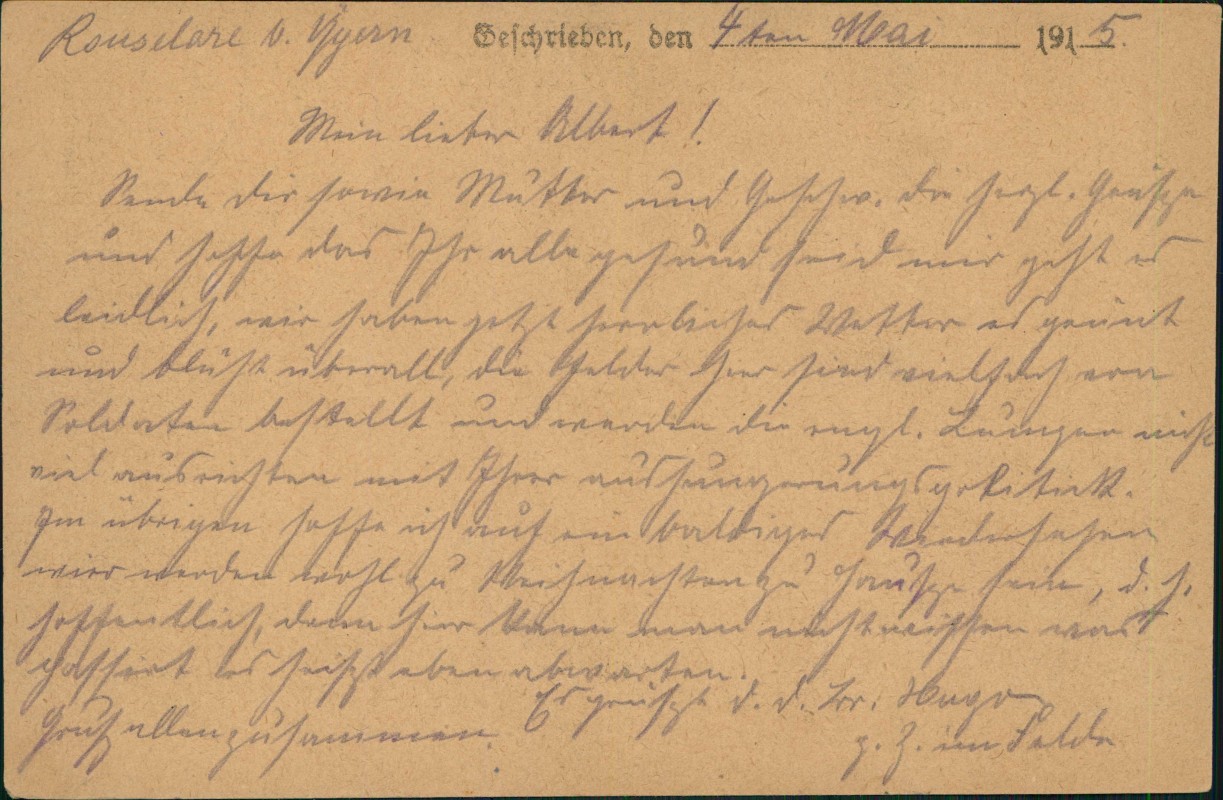 Rouselare b. Ypern Geschrieben, den 4ten Mai 1915.
Mein lieber Albert!
Sende dir sowie Mutter und Geschw. die herzl. Grüsze
und hoffe das Ihr alle gesund seid mir geht es
leidlich, wir haben jetzt herrliches Wetter es grünt
und blüht überall, die Felder hier sind vielfach von
Soldaten bestellt und werden die engl. nicht
viel ausrichten mit Ihrer aushungerungspolitick.
Im übrigen hoffe ich auf ein baldiges Wiedersehen
wier werden wohl zu Weihnachten zu Hausze sein, d. h.
hoffentlich, denn hier kann man nicht wissen was
passiert es heiszt eben abwarten.
Es grüszt d. d. Br. Hugo
Gruß allen zusammen. z. Z. im Felde